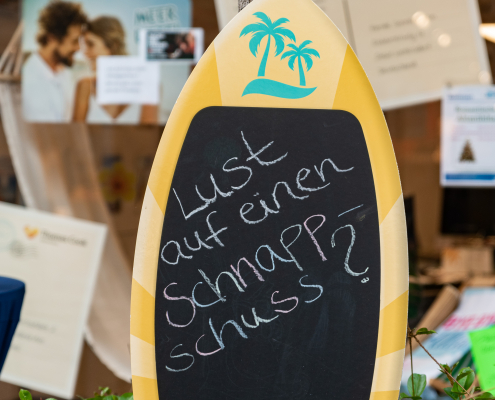 Lust
auf einen
Schnapp-
schuss?